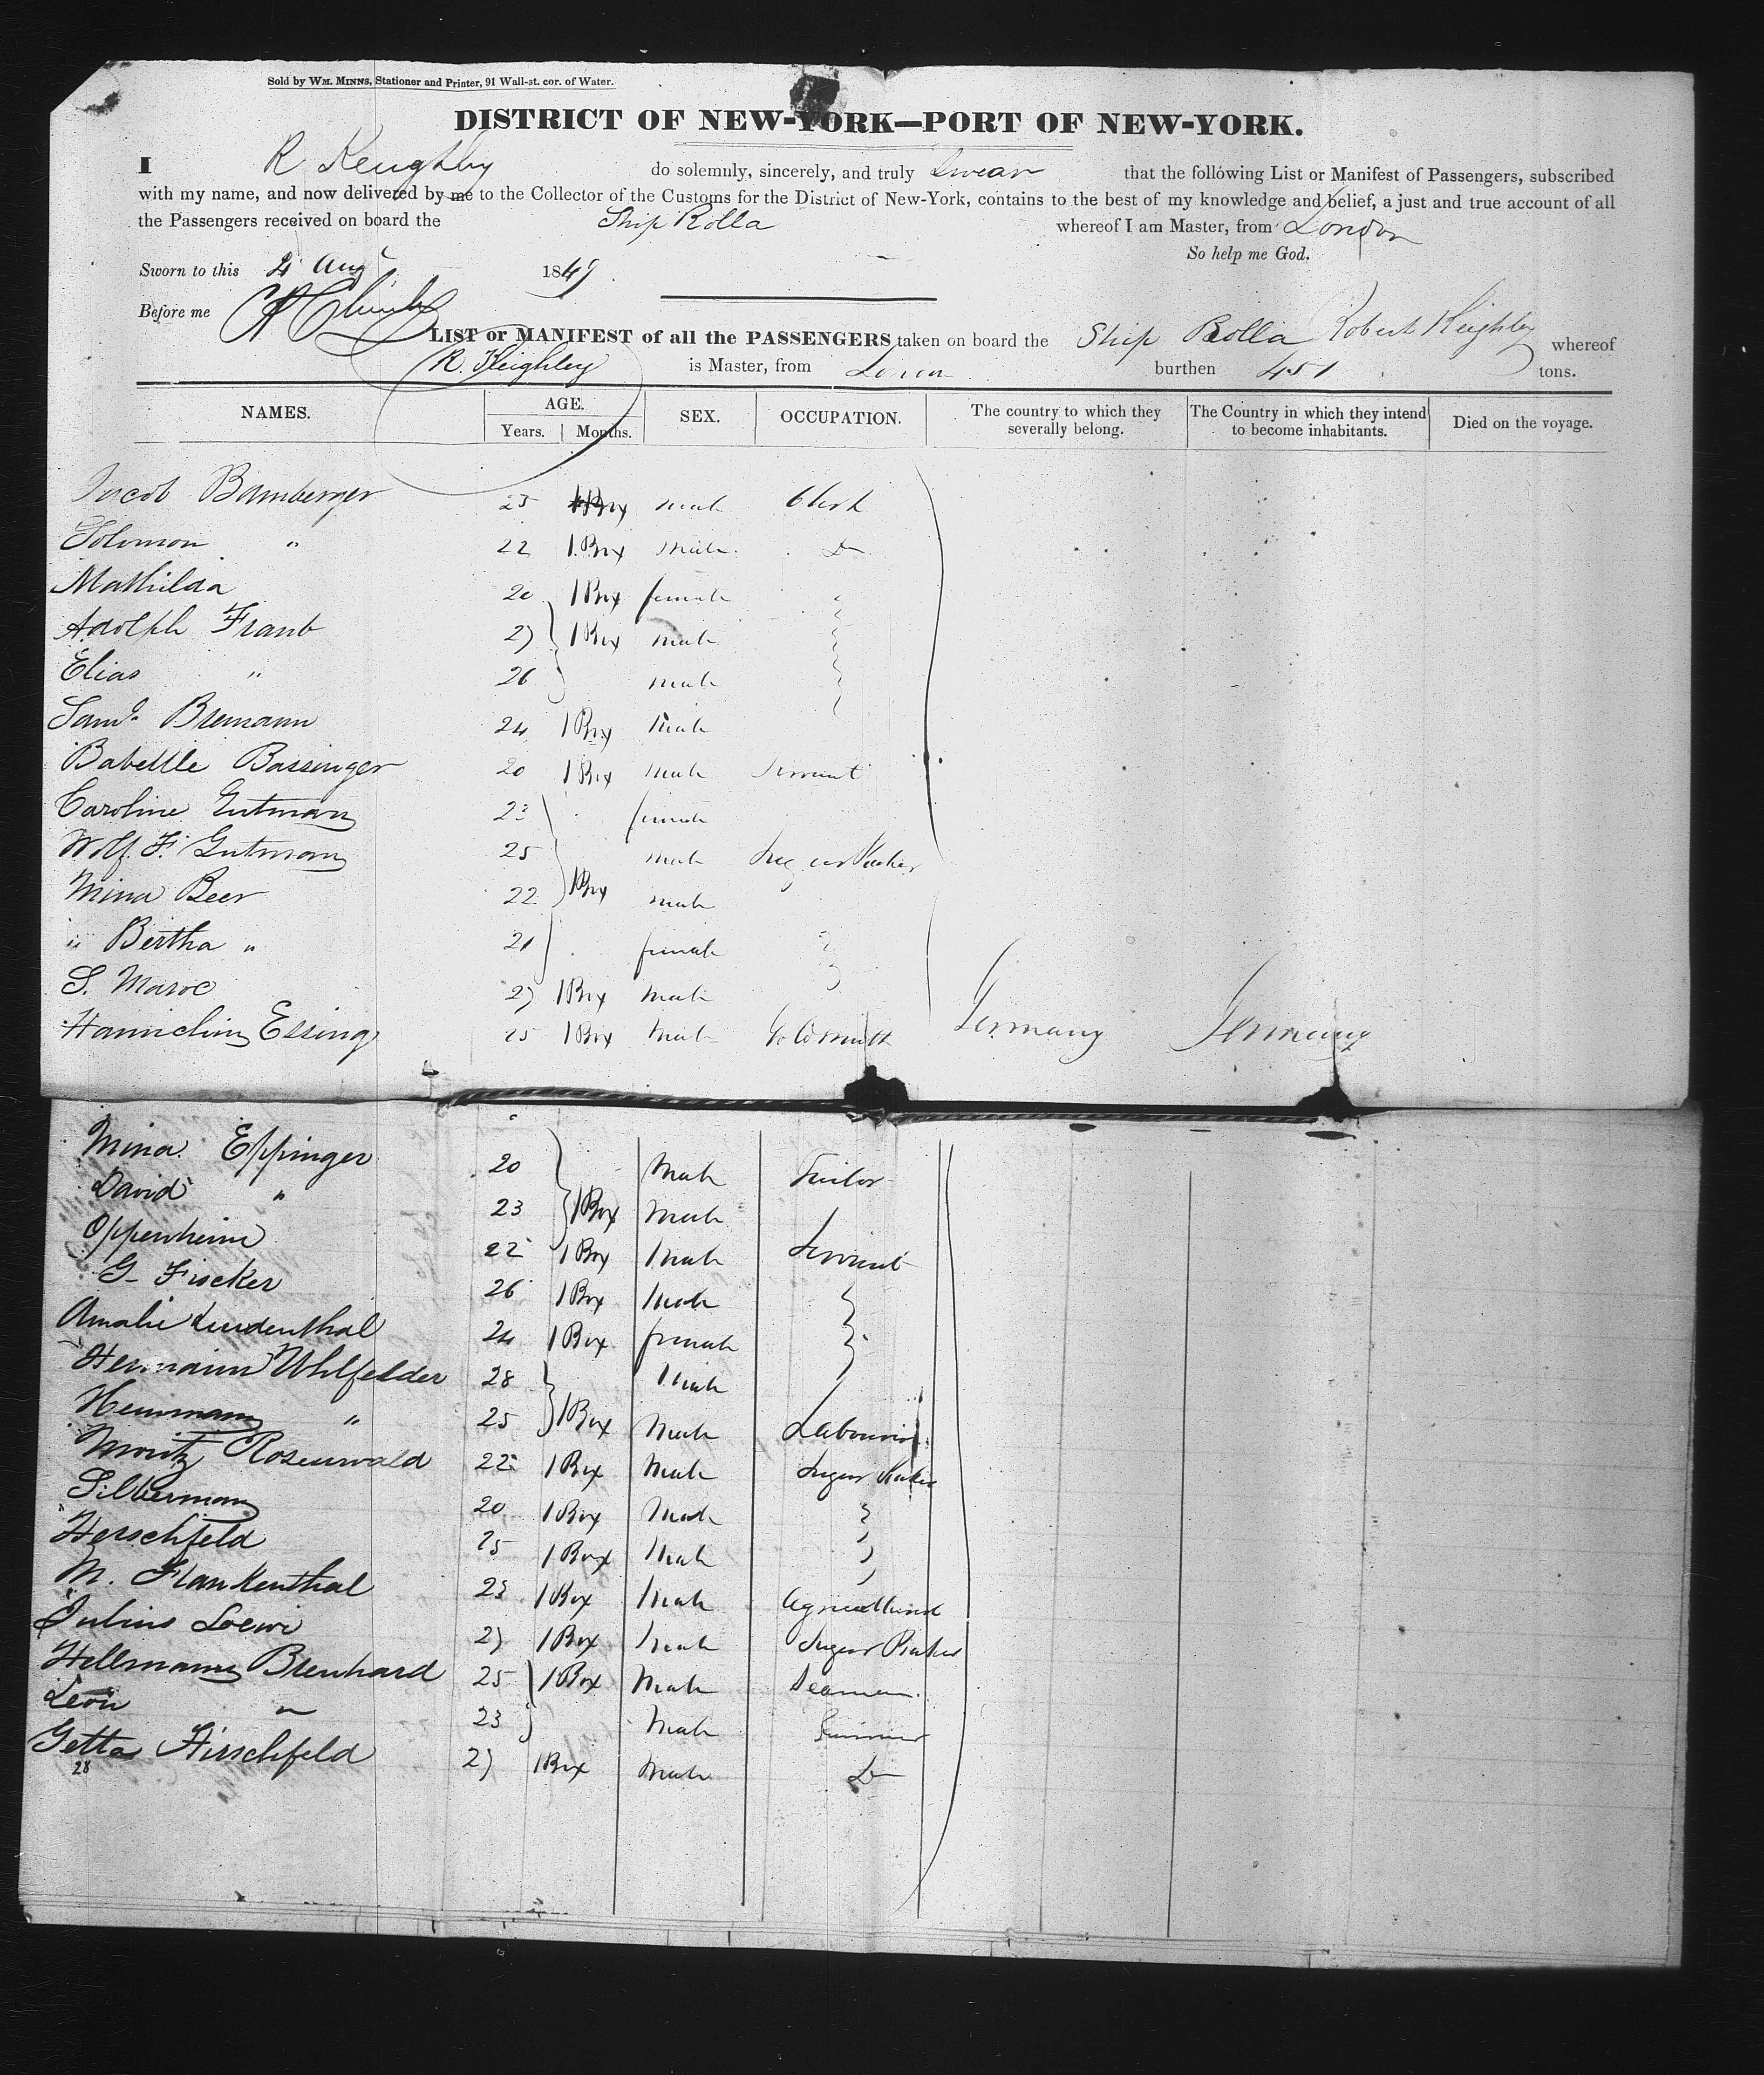 Sold by WM. MINNS, Stationer and Printer, 91 Wall-st. cor. of Water.
DISTRICT OF NEW-YORK—PORT OF NEW-YORK.
I R Keighley do solemnly, sincerely, and truly swear that the following List or Manifest of Passengers, subscribed
with my name, and now delivered by me to the Collector of the Customs for the District of New-York, contains to the best of my knowledge and belief, a just and true account of all
the Passengers received on board the Ship Rolla whereof I am Master, from London
So help me God.
Sworn to this Aug 1847
Before me
LIST or MANIFEST of all the PASSENGERS taken on board the Ship Rolla Robert Keighley whereof
R. Keighley is Master, from burthen 451 tons.
NAMES. AGE. SEX. OCCUPATION. The country to which they severally belong. The Country in which they intend to become inhabitants. Died on the voyage.
Years. Months.
Jacob Bamberger 25 1 Box male Clerk
Solomon " 22 1 Box male Do
Mathilda 20 1 Box female
Adolph Traub 27 1 Box male
Elias " 26 male
Saml. Bremann 24 1 Box male
Babettle Bassinger 20 1 Box male Servant
Caroline Gutmann 23 female
Wolf F. Gutmann 25 male Sugar Baker
Mina Beer 22 1 Box male
" Bertha " 21 female
S. Maroc 27 1 Box male
Hannchim Essing 25 1 Box male Goldsmith Germany Germany
Mina Eppinger 20 male Tailor
David " 23 1 Box male
Oppenheim 22 1 Box male Servant
G. Fischer 26 1 Box male
Amalie Lindenthal 24 1 Box female
Hermann Uhlfelder 28 male
Heinmann " 25 1 Box male Labourer
Moritz Rosenwald 22 1 Box male Sugar Baker
Silbermann 20 1 Box male "
Herschfeld 25 1 Box male "
M. Frankenthal 23 1 Box male Agriculturist
Julius Loewi 27 1 Box male Sugar Baker
Hellmann Brenhard 25 1 Box male Seaman
Leon " 23 male
Getta Hirschfeld 27 1 Box male Do
28